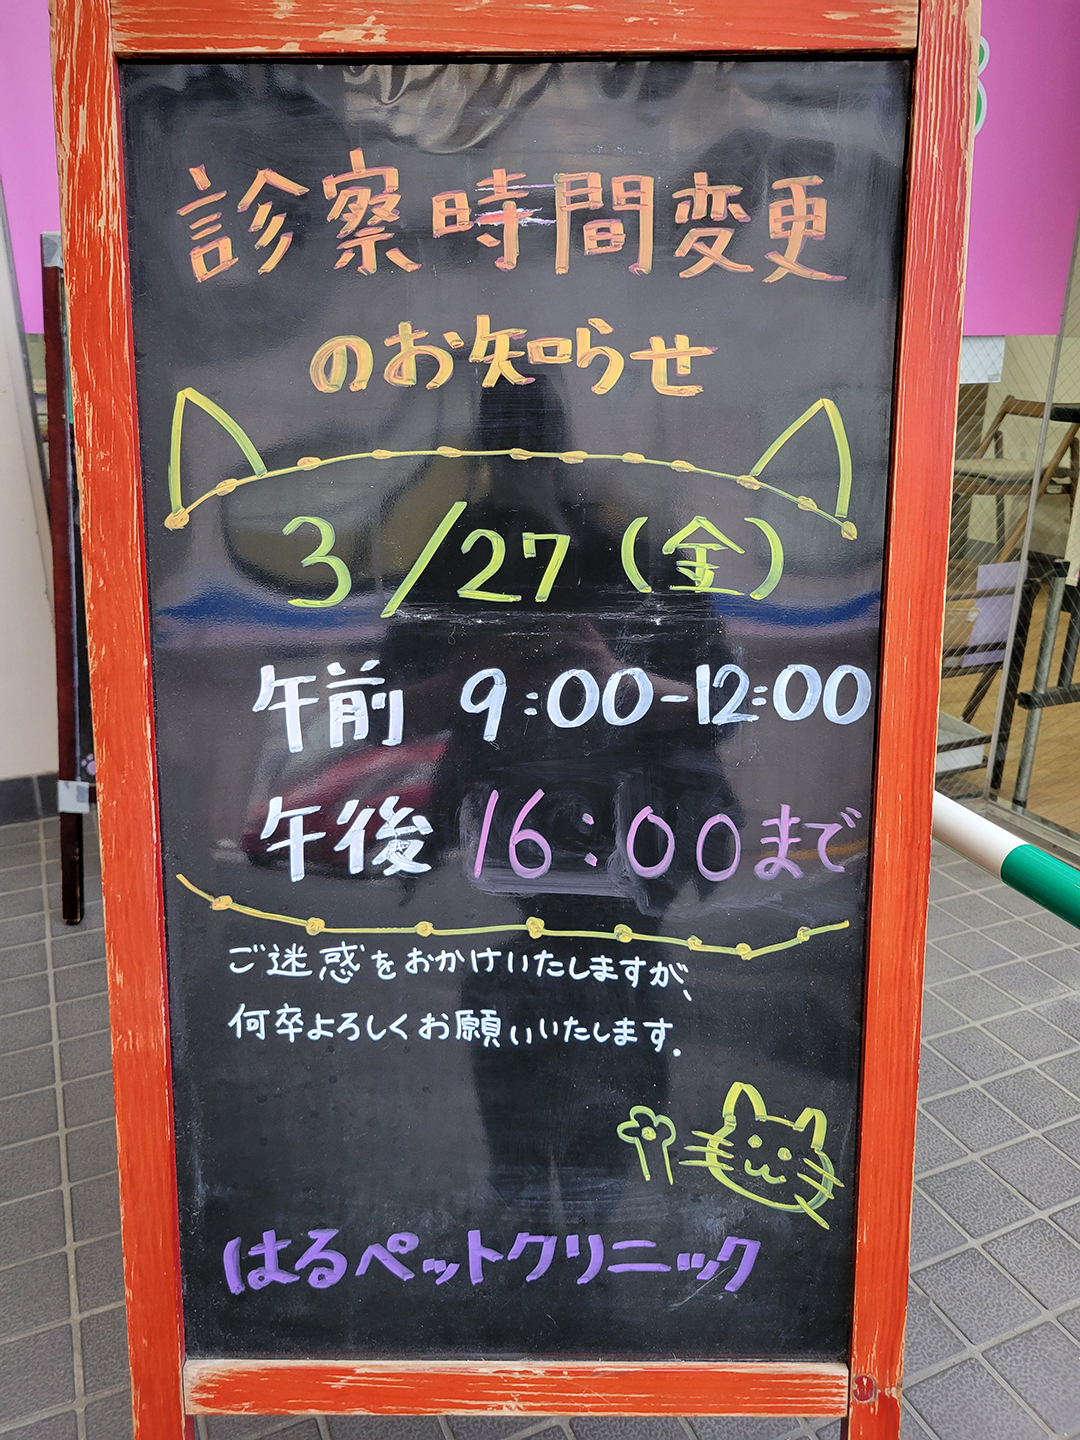 診察時間変更
のお知らせ
3/27(金)
午前 9:00-12:00
午後 16:00まで
ご迷惑をおかけいたしますが、
何卒よろしくお願いいたします.
はるペットクリニック